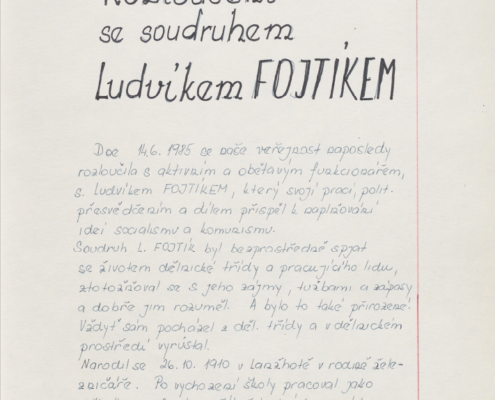 Rozloučení
se soudruhem
Ludvíkem FOJTÍKEM
Dne 14.6. 1985 se naše veřejnost naposledy
rozloučila s aktivním a obětavým funkcionářem,
s. Ludvíkem FOJTÍKEM, který svojí prací, polit.
přesvědčením a dílem přispěl k naplňování
idei socialismu a komunismu.
Soudruh L. FOJTÍK byl bezprostředně spjat
se životem dělnické třídy a pracujícího lidu,
ztotožňoval se s jeho zájmy, tužbami a zápasy
a dobře jim rozuměl. A bylo to také přirozené.
Vždyť sám pocházel z děl. třídy a v dělnickém
prostředí vyrůstal.
Narodil se 26. 10. 1910 v Lanžhotě v rodině žele-
zničáře. Po vychození školy pracoval jako